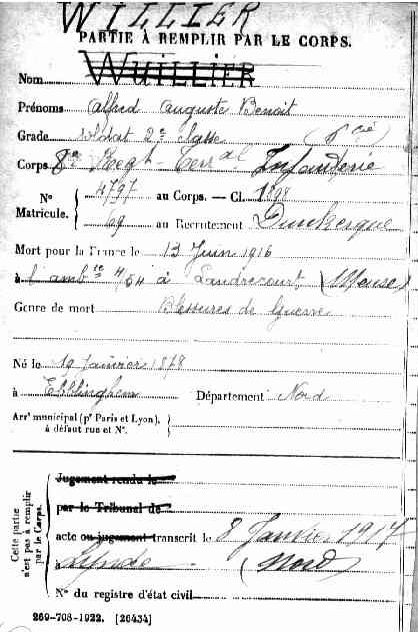 WILLIER
PARTIE À REMPLIR PAR LE CORPS.
Nom WUILLIER
Prénoms Alfred Auguste Benoit
Grade soldat 2e classe
Corps 8e Regt Terral Infanterie
N° Matricule. 4797 au Corps. — Cl. 1898
69 au Recrutement Dunkerque
Mort pour la France le 13 Juin 1916
à l'ambce 4/54 à Landrecourt (Meuse)
Genre de mort Blessures de Guerre
Né le 19 Janvier 1878
à Ebblinghem Département Nord
Arrt municipal (pr Paris et Lyon),
à défaut rue et N°.
Cette partie n'est pas à remplir par le Corps.
Jugement rendu le
par le Tribunal de
acte ou jugement transcrit le 8 Janvier 1917
Lynde (Nord)
N° du registre d'état civil
269-708-1922. [26434]